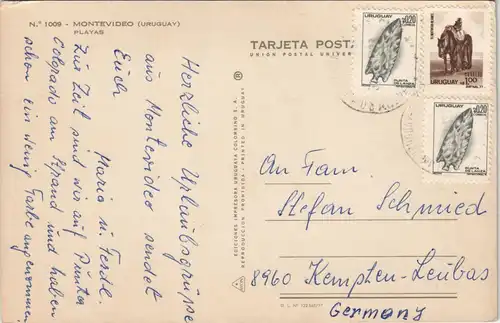 N.° 1009 - MONTEVIDEO (URUGUAY)
PLAYAS
Herzliche Urlaubsgrüsse
aus Montevideo sendet
Euch
Maria u. Ferdl.
Zur Zeit sind wir auf Punta
Colorado am Strand und haben
schon ein wenig Farbe angenommen
EDICIONES IMPRESORA URUGUAYA COLOMBINO S. A.
REPRODUCCION PROHIBIDA - PRINTED IN URUGUAY
TARJETA POSTA
UNION POSTAL UNIVER
URUGUAY
N$ 0.20
PUNTA
DE LANZA
URUGUAY
1.00
URUGUAY
N$ 0.20
PUNTA
DE LANZA
An Fam.
Stefan Schmied
8960 Kempten-Leubas
Germany